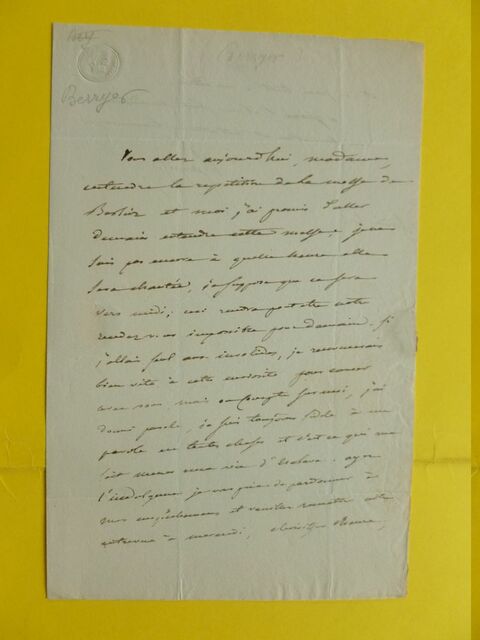 Berryer
Berryer
Vous allez aujourd'hui, madame,
entendre la repetition de la messe de
Berlioz et moi j'ai promis d'aller
demain entendre cette messe; je ne
sais pas encore à quelle heure elle
sera chantée, je suppose que ce sera
vers midi; ceci rendra peut etre notre
rendez vous impossible pour demain. Si
j'allais seul aux invalides, je renoncerais
bien vite à cette curiosité pour causer
avec vous mais on compte sur moi, j'ai
donné parole, je suis toujours fidele à ma
parole en toutes choses et c'est ce qui me
fait mener une vie d'esclave. ayez
l'indulgence je vous prie de pardonner à
mes empêchemens et vouloir remettre notre
entrevue à mercredi, choisissez l'heure,